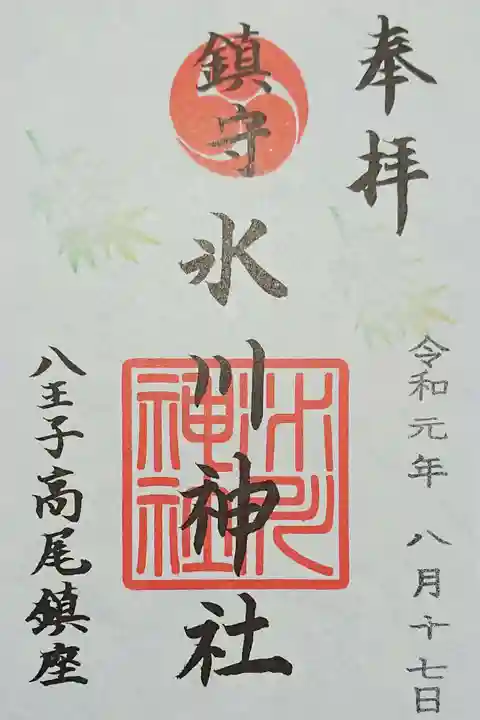 奉拝
令和元年 八月十七日
鎮守氷川神社
氷川神社
八王子高尾鎮座